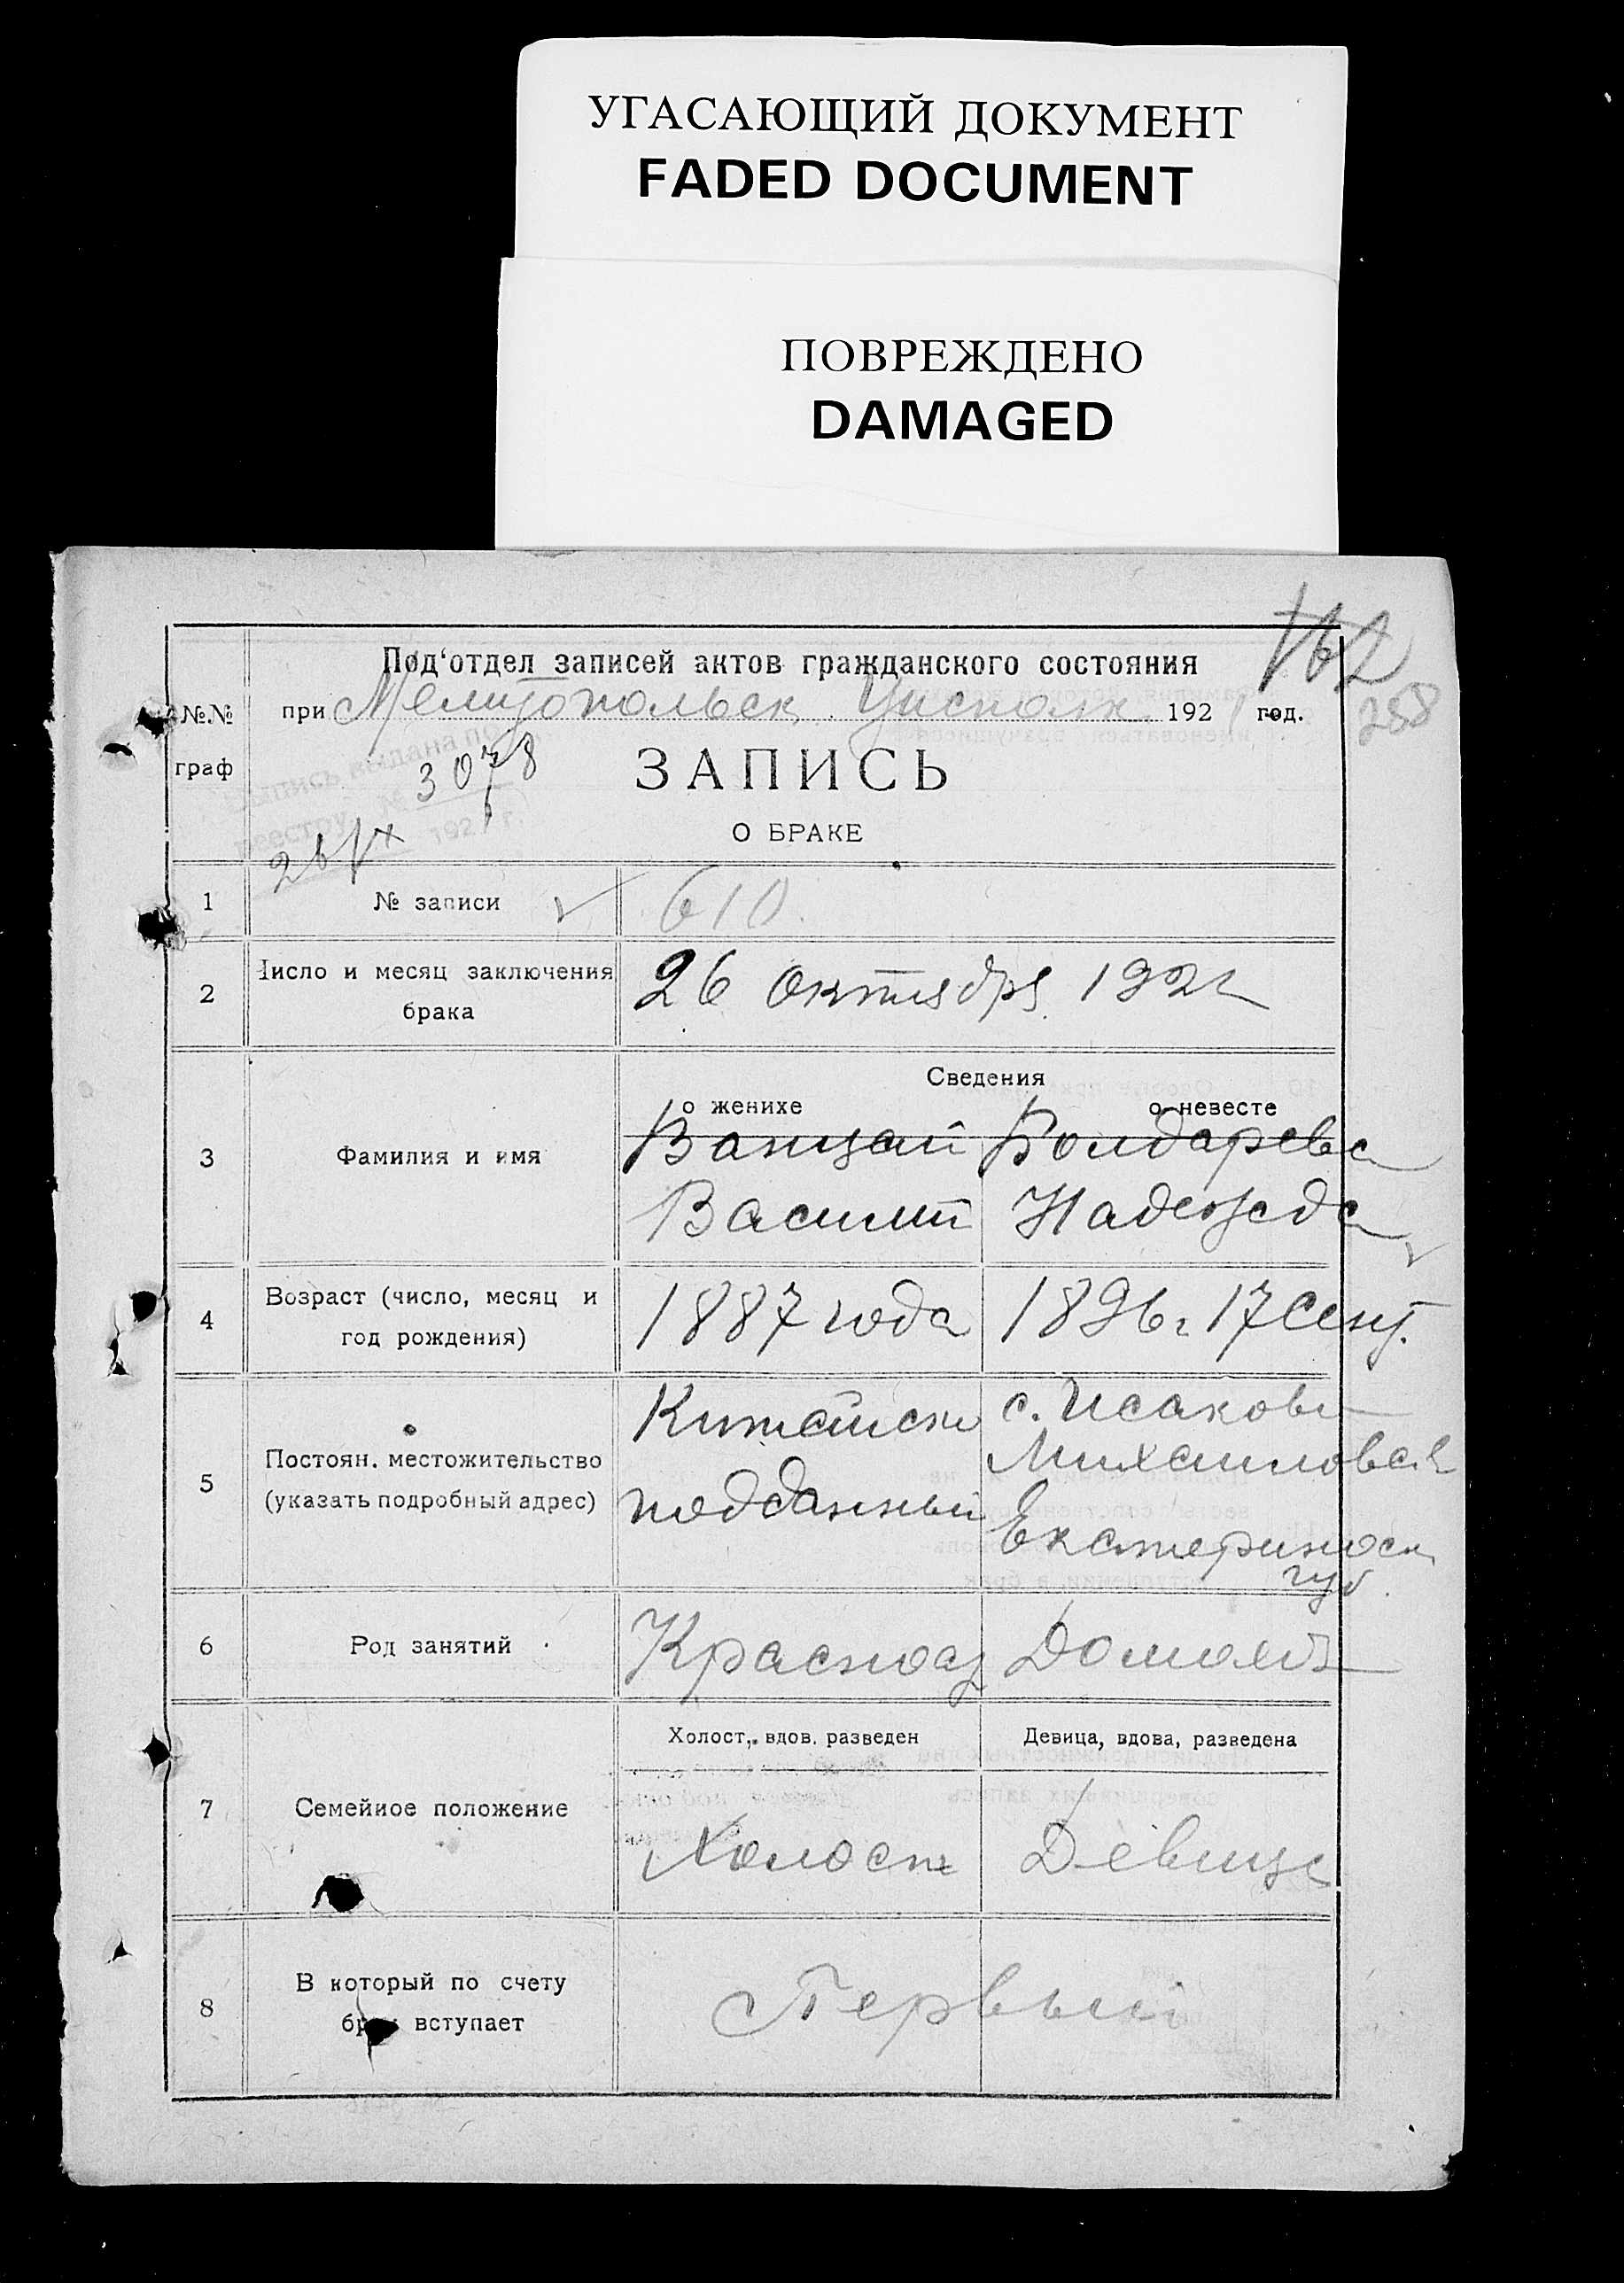 УГАСАЮЩИЙ ДОКУМЕНТ
FADED DOCUMENT
ПОВРЕЖДЕНО
DAMAGED
162
258
Под‘отдел записей актов гражданского состояния
№№
граф
при Мелитопольск. Уисполк. 1921 год.
Выпись выдана по
реестру № 3078
1921 г.
ЗАПИСЬ
О БРАКЕ
1 № записи 610.
2 Число и месяц заключения
брака
26 октября 1921
Сведения
о женихе о невесте
3 Фамилия и имя
Ванцай Болдарева
Василий Надежда
4 Возраст (число, месяц и
год рождения)
1887 года 1896 г 17 Сент.
5 Постоян. местожительство
(указать подробный адрес)
Китайски
подданный
с. Исаково
Михайловск
Екатеринос
губ.
6 Род занятий Красноар Домохоз
7 Семейное положение
Холост, вдов. разведен Девица, вдова, разведена
Холост Девица
8 В который по счету
брак вступает
Первый